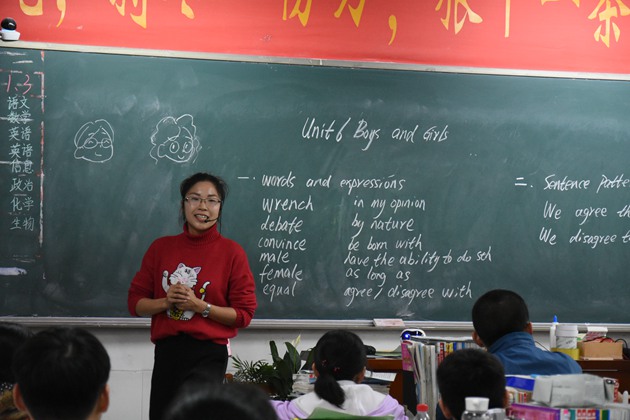 1.3
语文
数学
英语
英语
信息
政治
化学
生物
Unit 6 Boys and Girls
一. words and expressions
wrench in my opinion
debate by nature
convince be born with
male have the ability to do sth
female as long as
equal agree / disagree with
二. Sentence
We agree
We disagree